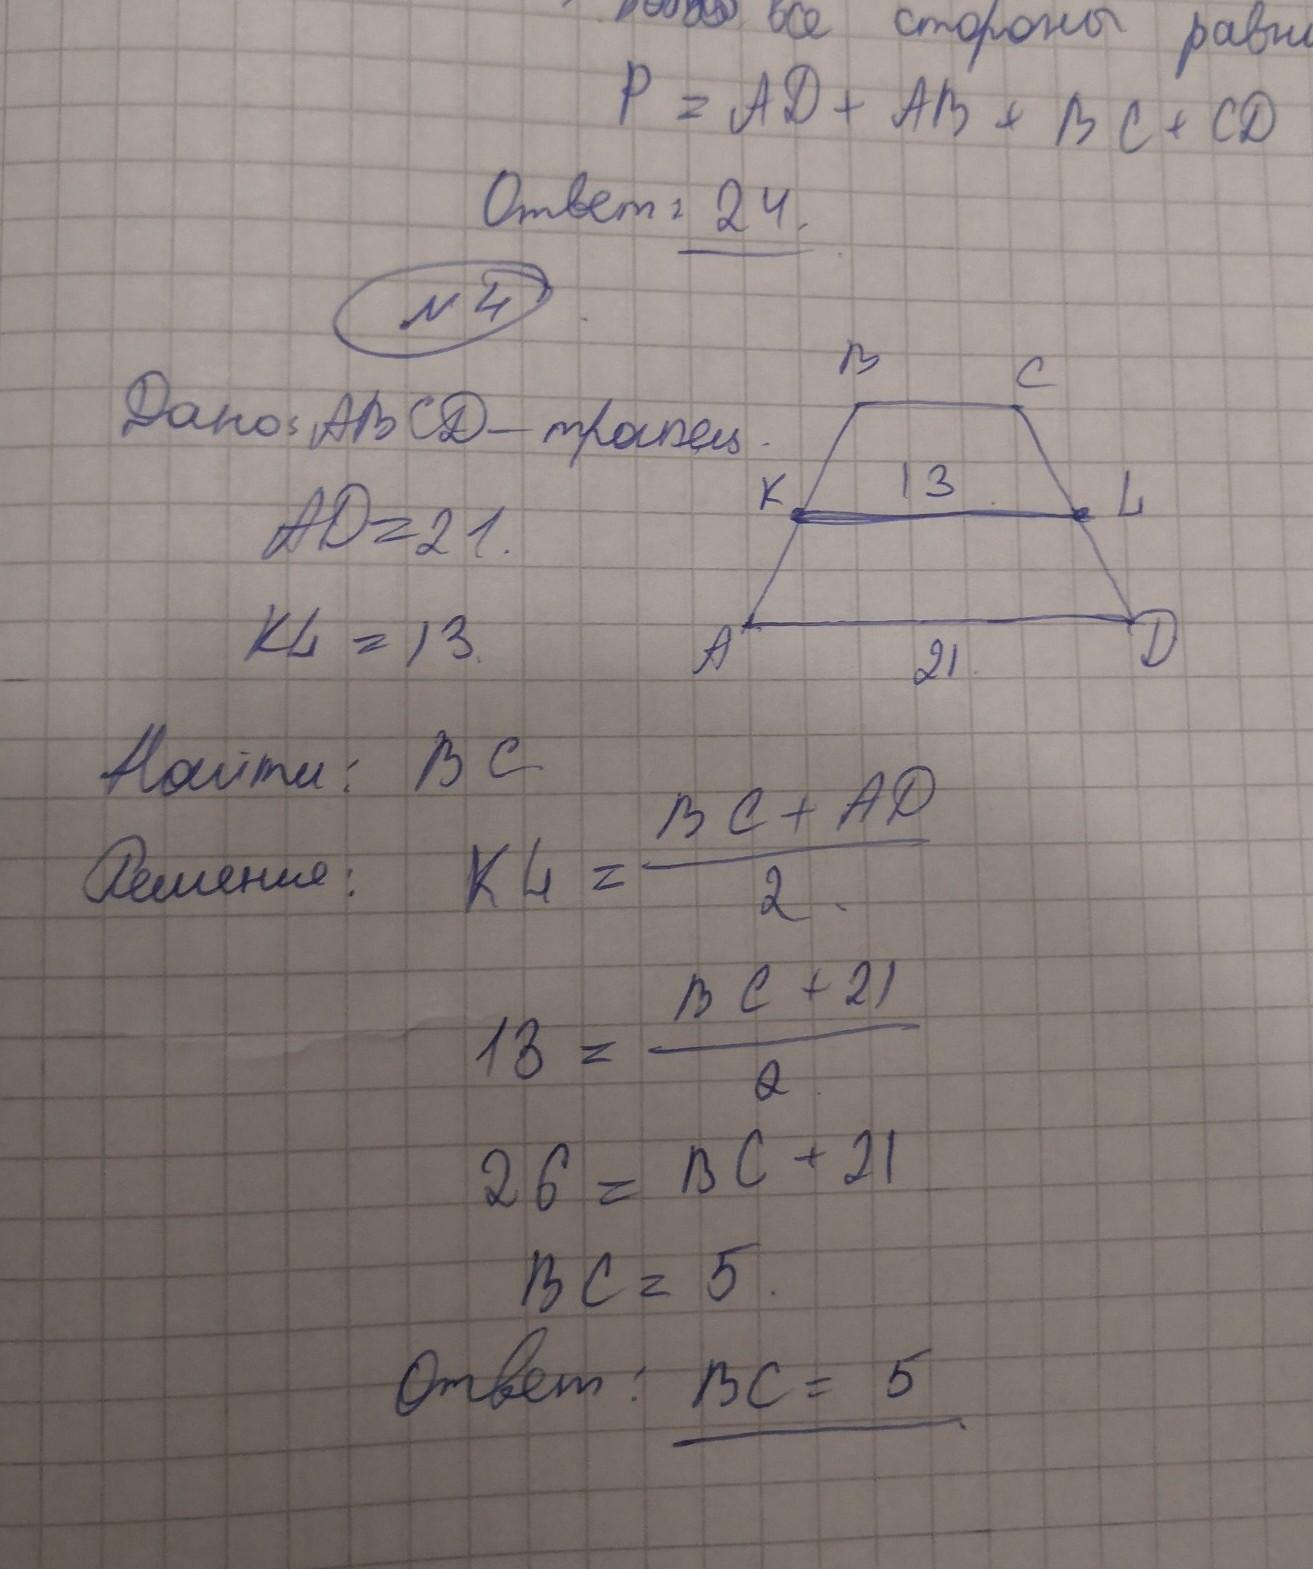 все стороны равны
P = AD + AB + BC + CD
Ответ: 24.
N4
Дано: ABCD - трапец.
AD = 21.
KL = 13.
B C
K 13 L
A 21 D
Найти: BC
Решение: KL = BC + AD / 2.
13 = BC + 21 / 2
26 = BC + 21
BC = 5.
Ответ: BC = 5